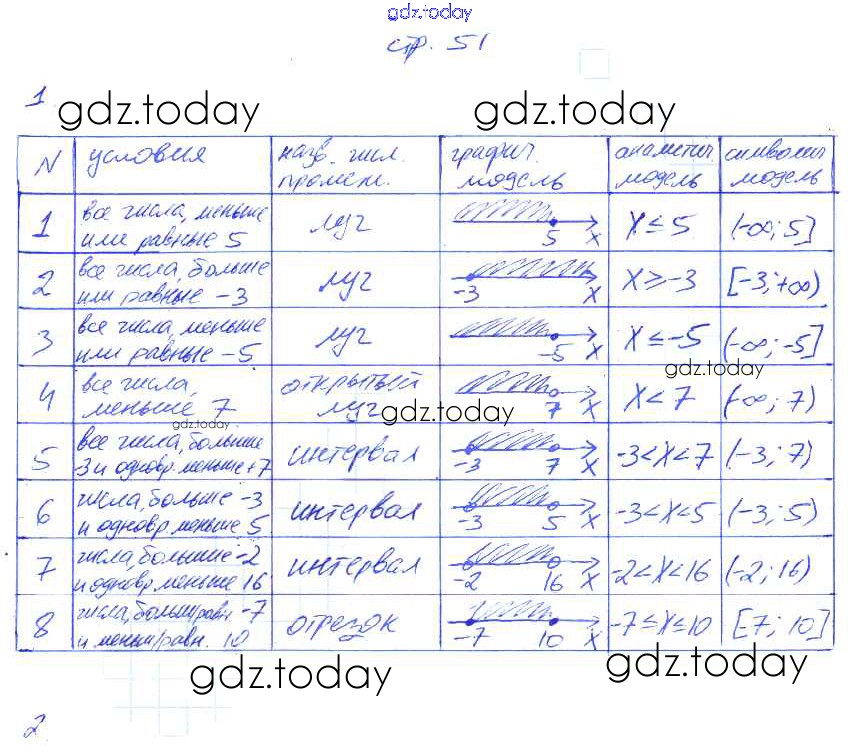 gdz.today
стр. 51
1
gdz.today gdz.today
N условия назв. числ. промеж. графич. модель аналитич модель символич модель
1 все числа, меньше или равные 5 луч 5 x x ≤ 5 (-∞; 5]
2 все числа, больше или равные -3 луч -3 x x ≥ -3 [-3; +∞)
3 все числа, меньше или равные -5 луч -5 x x ≤ -5 (-∞; -5]
gdz.today
4 все числа, меньше 7 открытый луч 7 x x < 7 (-∞; 7)
gdz.today gdz.today
5 все числа, больше -3 и одновр. меньше +7 интервал -3 7 x -3 < x < 7 (-3; 7)
6 числа, больше -3 и одновр. меньше 5 интервал -3 5 x -3 < x < 5 (-3; 5)
7 числа, больше -2 и одновр. меньше 16 интервал -2 16 x -2 < x < 16 (-2; 16)
8 числа, больш/равн -7 и меньш/равн. 10 отрезок -7 10 x -7 ≤ x ≤ 10 [7; 10]
gdz.today gdz.today
2